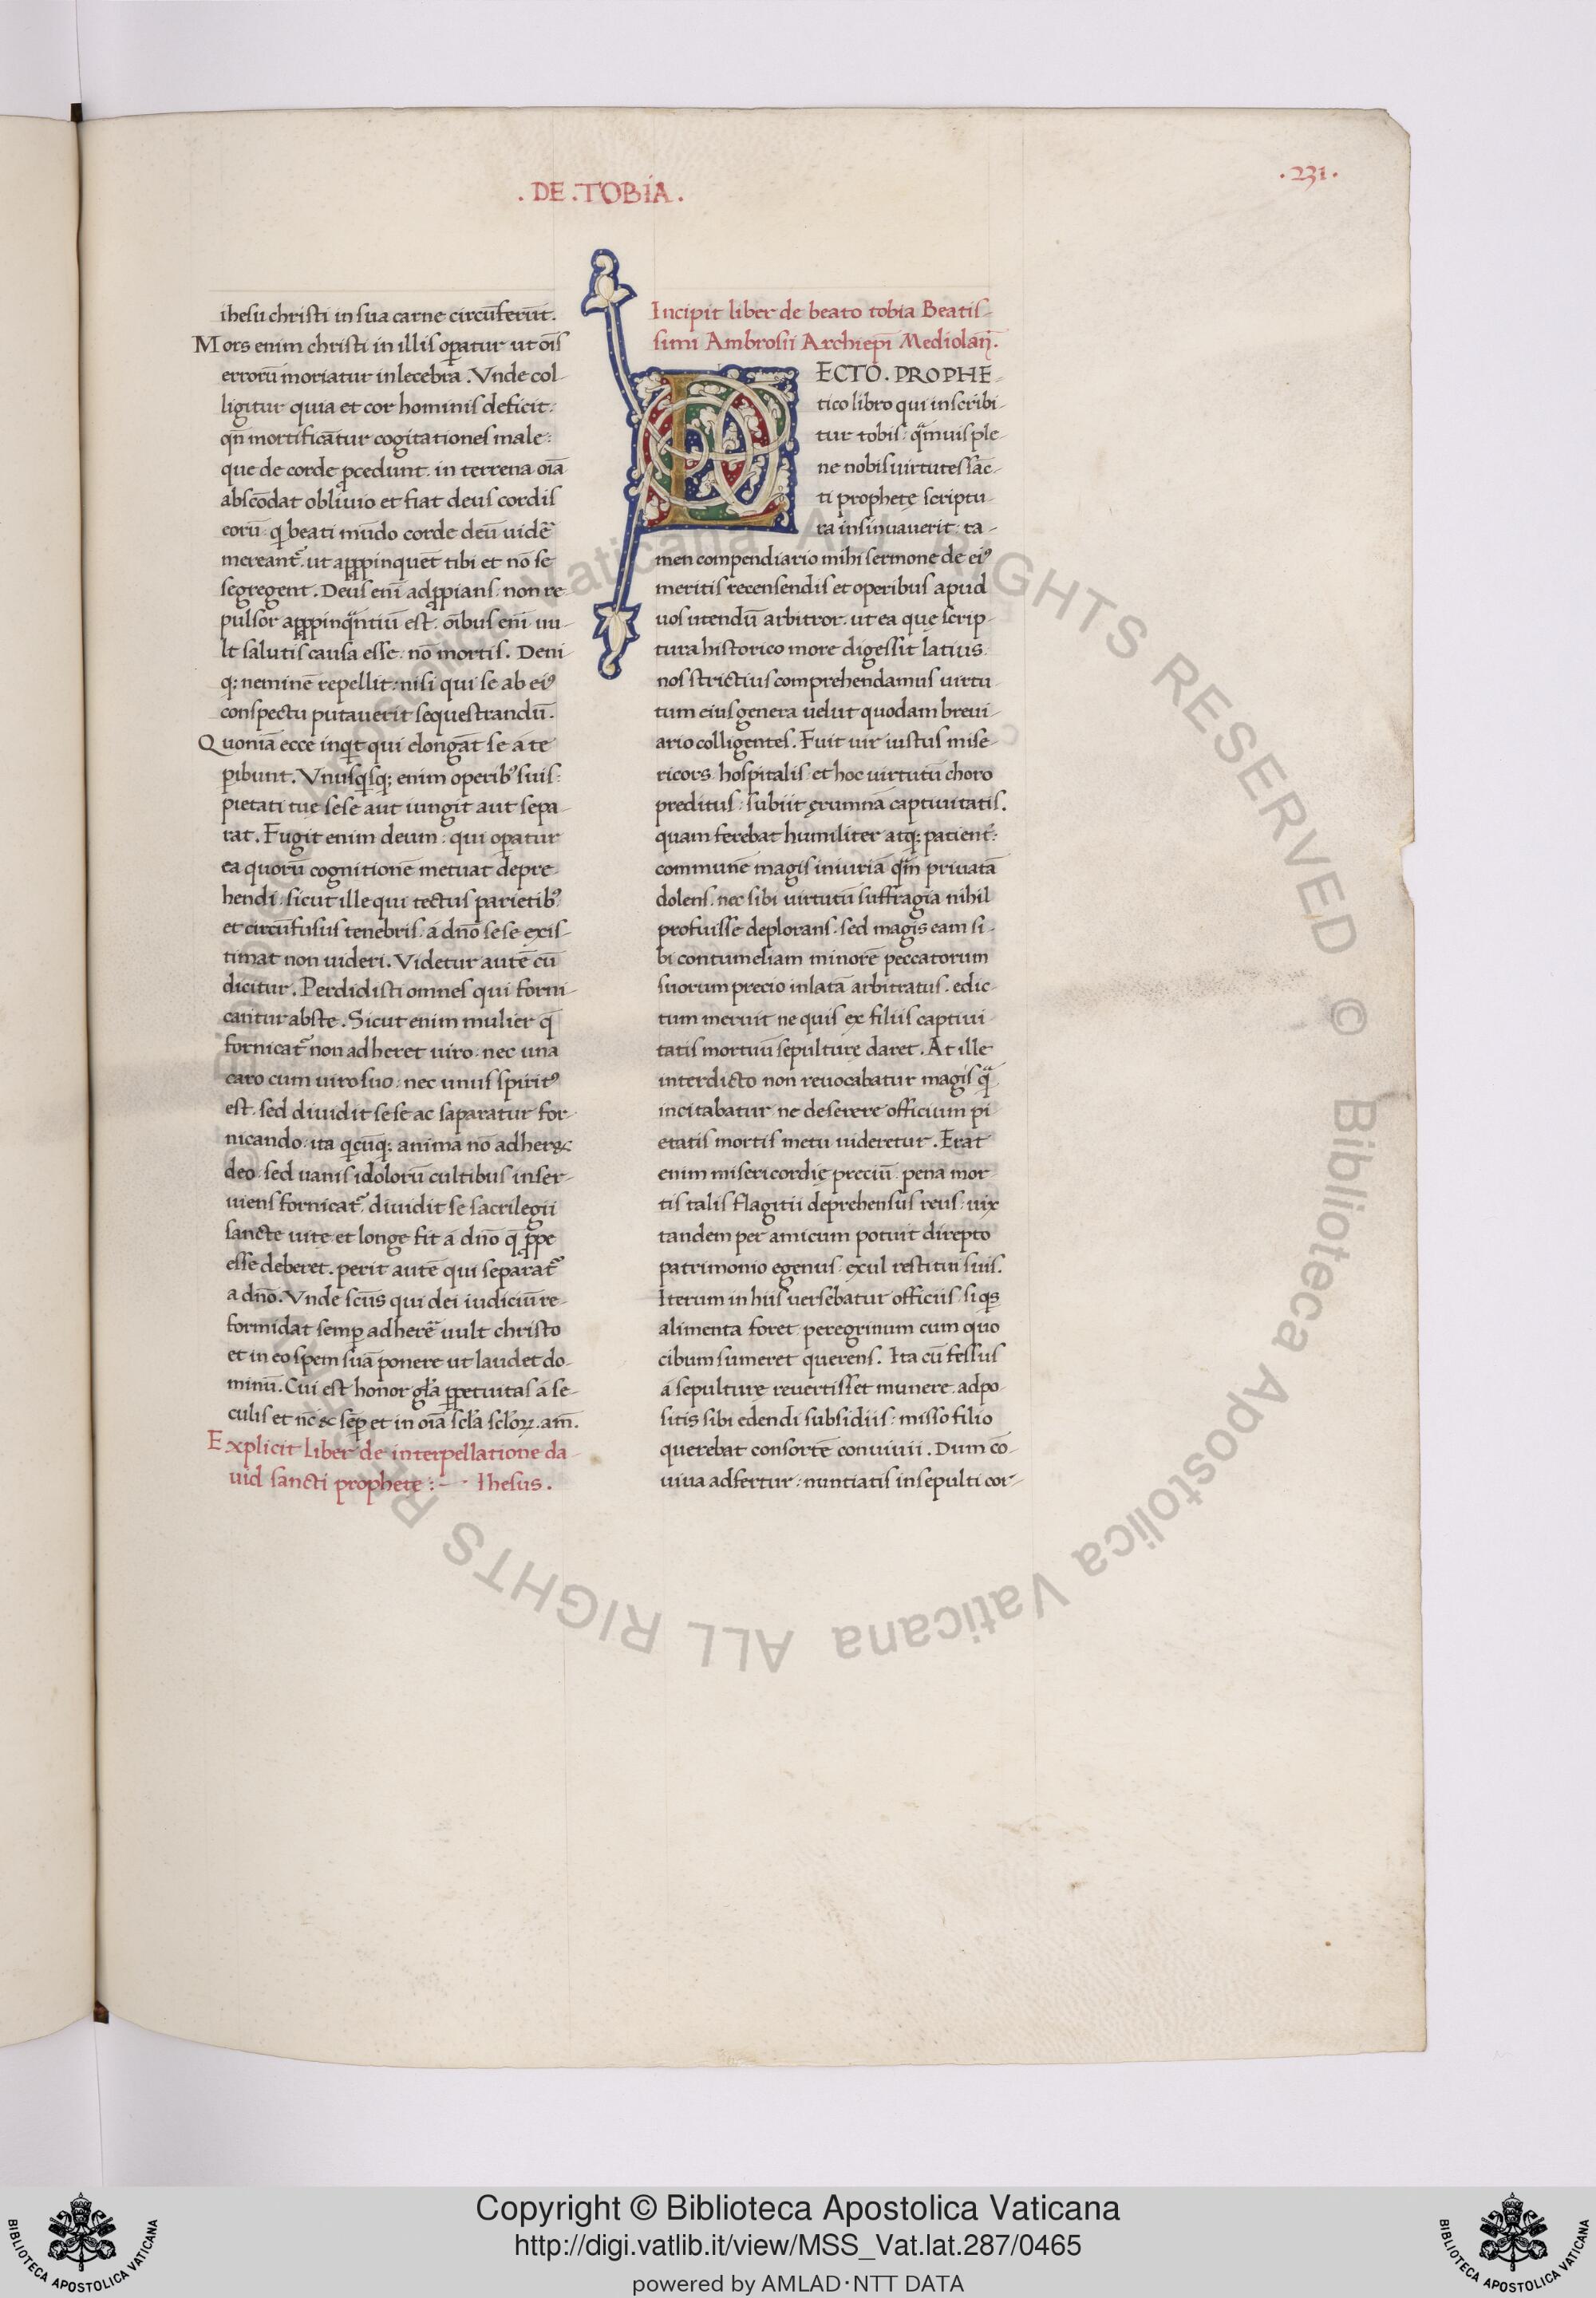 . DE . TOBIA .
. 231 .
ihesu christi in sua carne circūferūt.
Mors enim christi in illis op̄atur ut oīs
errorū moriatur inlecebra . Vnde col-
ligitur quia et cor hominis deficit.
qn̄ mortificāt̄ur cogitationes male:
que de corde p̄cedunt. in terrena oīa
abscōdat oblivio et fiat deus cordis
eorū. q beati mūdo corde deū uidē
mereant̄. ut appropinquēt tibi et nō se
segregent . Deus enī adppians. non re
pulsor appropinq̄ntiū est. oībus enī uu-
lt salutis causa esse. nō mortis. Deni
q; neminē repellit: nisi qui se ab eiꝰ
conspectu putauerit sequestrandū.
Quoniā ecce inqt qui elongāt se a te
pibunt. Vnusqsq; enim operibꝰ suis:
pietati tuę sese aut iungit aut sepa-
rat. Fugit enim deum: qui op̄atur
ea quorū cognitionē metuat depre-
hendi: sicut ille qui tectus parietibꝰ
et circūfusus tenebris. a dn̄o sese exis-
timat non uideri. Videtur autē cū
dicitur. Perdidisti omnes qui forni-
cantur abste. Sicut enim mulier q̄
fornicat̄ non adheret uiro. nec una
caro cum uiro suo. nec unus spiritꝰ
est. sed diuidit sese ac saparatur for-
nicando. ita qcūq; anima nō adher&
deo. sed uanis idolorū cultibus inser-
uiens fornicat̄. diuidit se sacrilegii
sancte uitę et longe fit a dn̄o q̄ ppe
esse deberet. perit autē qui separat̄
a dn̄o. Vnde scūs qui dei iudiciū re-
formidat semp adherē uult christo
et in eo spem suā ponere ut laudet do-
minū. Cui est honor glā ppetuitas a se-
culis et nc̄ & sēp et in oīa sclā sclōꝝ. am̄.
Explicit liber de interpellatione da-
uid sancti prophete : — · Ihesus .
Incipit liber de beato tobia Beatis-
simi Ambrosii Archiepī Mediolañ.
LECTO . PROPHE-
tico libro qui inscribi-
tur tobis: q̄muis ple-
ne nobis uirtutes sāc-
ti prophetę scriptu-
ra insinuauerit. ta-
men compendiario mihi sermone de eiꝰ
meritis recensendis et operibus apud
uos utendū arbitror. ut ea que scrip-
tura historico more digessit latius.
nos strictius comprehendamus uirtu
tum eius genera uelut quodam breui-
ario colligentes. Fuit uir iustus mise-
ricors. hospitalis. et hoc uirtutū choro
preditus: subiit ęrumnā captiuitatis.
quam ferebat humiliter atq; patient̄:
commune magis iniuriā q̄m priuatā
dolens. nec sibi uirtutū suffragia nihil
profuisse deplorans. sed magis eam si-
bi contumeliam minorē peccatorum
suorum precio inlatā arbitratus. edic-
tum meruit ne quis ex filiis captiui-
tatis mortuū sepulturę daret. At ille
interdicto non reuocabatur magis q̄
incitabatur. ne deserere officium pi-
etatis mortis metu uideretur. Erat
enim misericordię preciū. pena mor-
tis talis flagitii deprehensus reus. uix
tandem per amicum potuit direpto
patrimonio egenus. exul restitui suis.
Iterum in hiis uersebatur officiis. si qs
alimenta foret. peregrinum cum quo
cibum sumeret querens. Ita cū fessus
a sepulturę reuertisset munere. adpo-
sitis sibi edendi subsidiis: misso filio
querebat consortē conuiuii. Dum cō-
uiua adfertur: nuntiatis insepulti cor-
Copyright © Biblioteca Apostolica Vaticana
http://digi.vatlib.it/view/MSS_Vat.lat.287/0465
powered by AMLAD·NTT DATA
BIBLIOTECA APOSTOLICA VATICANA
BIBLIOTECA APOSTOLICA VATICANA
© Biblioteca Apostolica Vaticana ALL RIGHTS RESERVED © Biblioteca Apostolica Vaticana ALL RIGHTS RESERVED